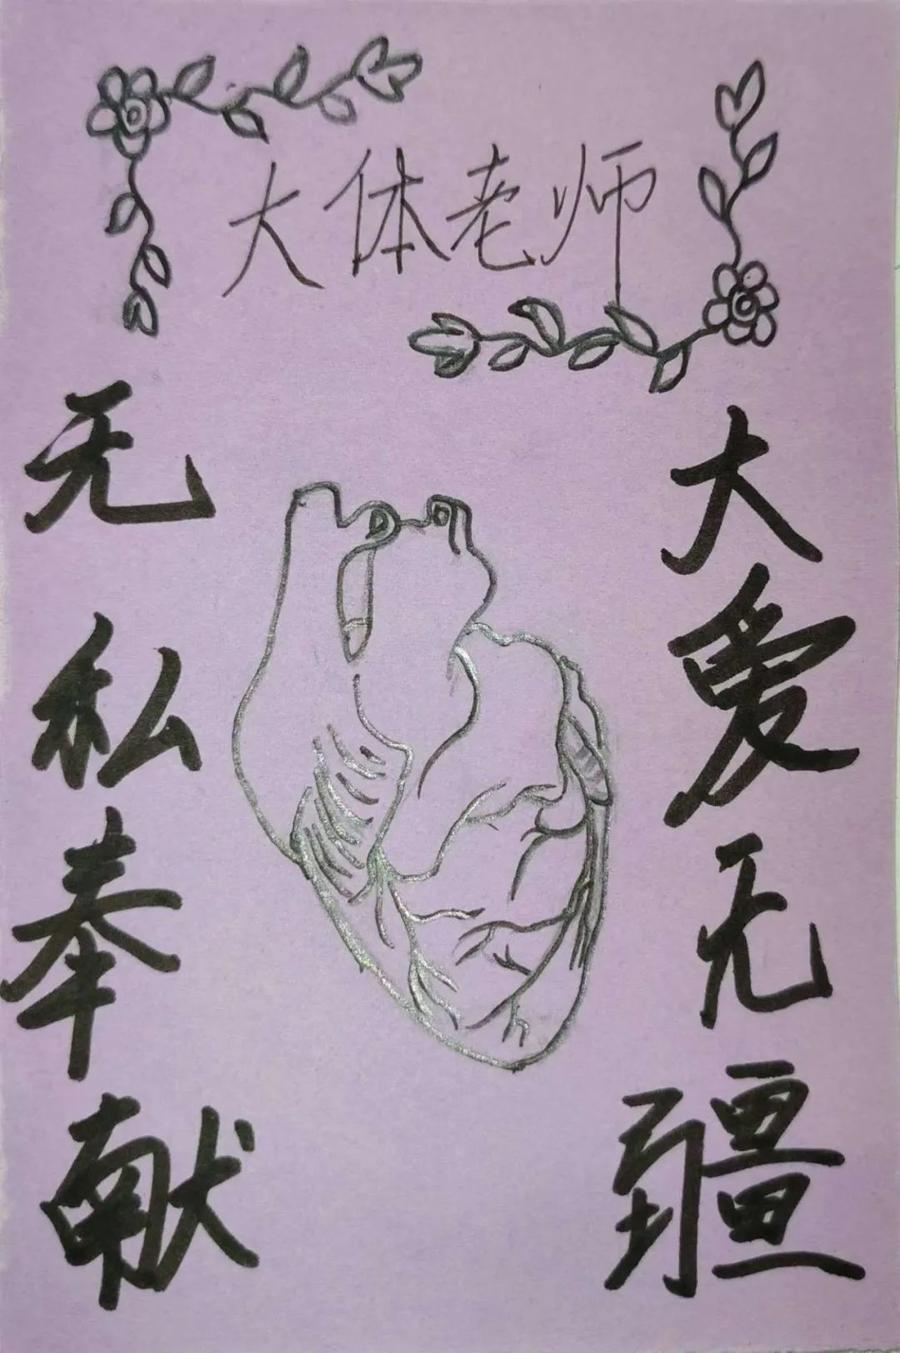 大体老师
大爱无疆
无私奉献